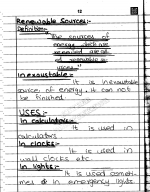 12
Renewable Sources:-
Definition:-
The sources of
energy which are
renewable are cal-
led renewable re-
sources.
Inexhaustable:-
It is inexhaustable
source of energy. It can not
be finished.
USES:-
In calculators:-
It is used in
calculators
In clocks:-
It is used in
wall clocks etc.
In lights:-
It is used someti-
mes & in emergency lights